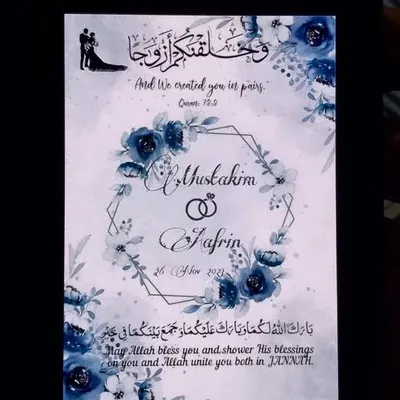 وَخَلَقْنَٰكُمْ أَزْوَٰجًا
"And We created you in pairs."
Quran: 78:8
Mustakim
Aafrin
26 Nov 2023
بَارَكَ اللهُ لَكُمَا وَبَارَكَ عَلَيْكُمَا وَ جَمَعَ بَيْنَكُمَا فِي
May Allah bless you and shower His blessings
on you and Allah unite you both in JANNAH.